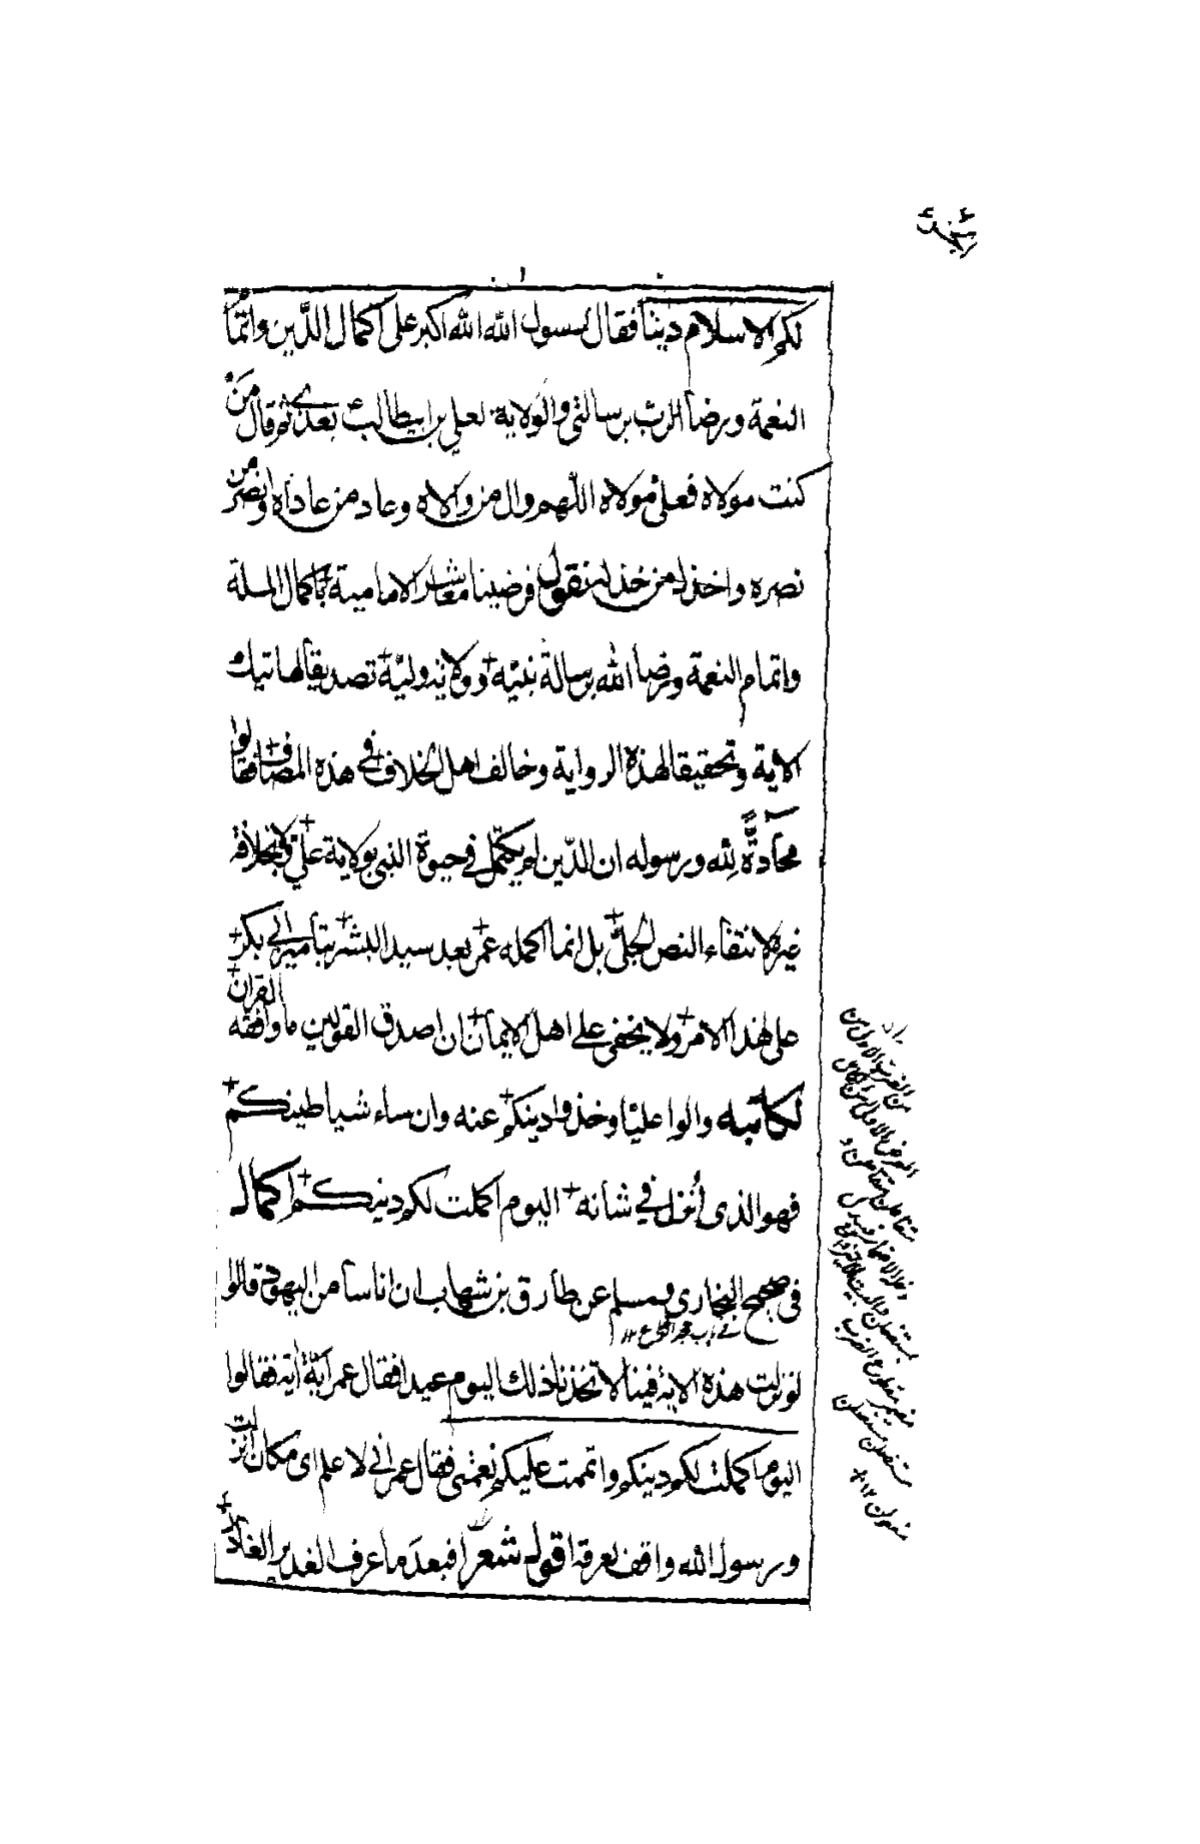 لكم الاسلام دينا فقال رسول الله الله اكبر على اكمال الدّين واتمام
النعمة ورضا الرب برسالتى والولاية لعلي بن ابيطالب بعدى ثم قال من
كنت مولاه فعلى مولاه اللهم وال من والاه وعاد من عاداه وانصر من
نصره واخذل من خذله نقول فرضينا معاشر الامامية باكمال الملة
واتمام النعمة ورضا الله برسالة نبيّه وولاية وليّه تصديقا لهاتيك
الاية وتحقيقا لهذه الرواية وخالف اهل الخلاف فى هذه المصاف فقالوا
محادّة لله ورسوله ان الدّين لم يكمل فى حيوة النبى بولاية على ولا بخلافة
غيره لانتفاء النص الجلىّ بل انما اكمله عمر بعد سيد البشر بتامير ابى بكر
على هذا الامر ولا يخفى على اهل الايمان ان اصدق القولين ما وافقه القران
لكاتبه والوا عليّا وخذوا دينكم عنه وان ساء شياطينكم
فهو الذى أنزل في شانه اليوم اكملت لكم دينكم اكمال
فى صحيح البخارى ومسلم عن طارق بن شهاب ان اناسا من اليهود قالوا
لو نزلت هذه الاية فينا لاتخذنا ذلك اليوم عيدا فقال عمر ايّة اية فقالوا
اليوم اكملت لكم دينكم واتممت عليكم نعمتى فقال عمر انى لا علم اى مكان انزلت
ورسول الله واقف بعرفة اقول شعرا فبعد ما عرف الغدير الغادر